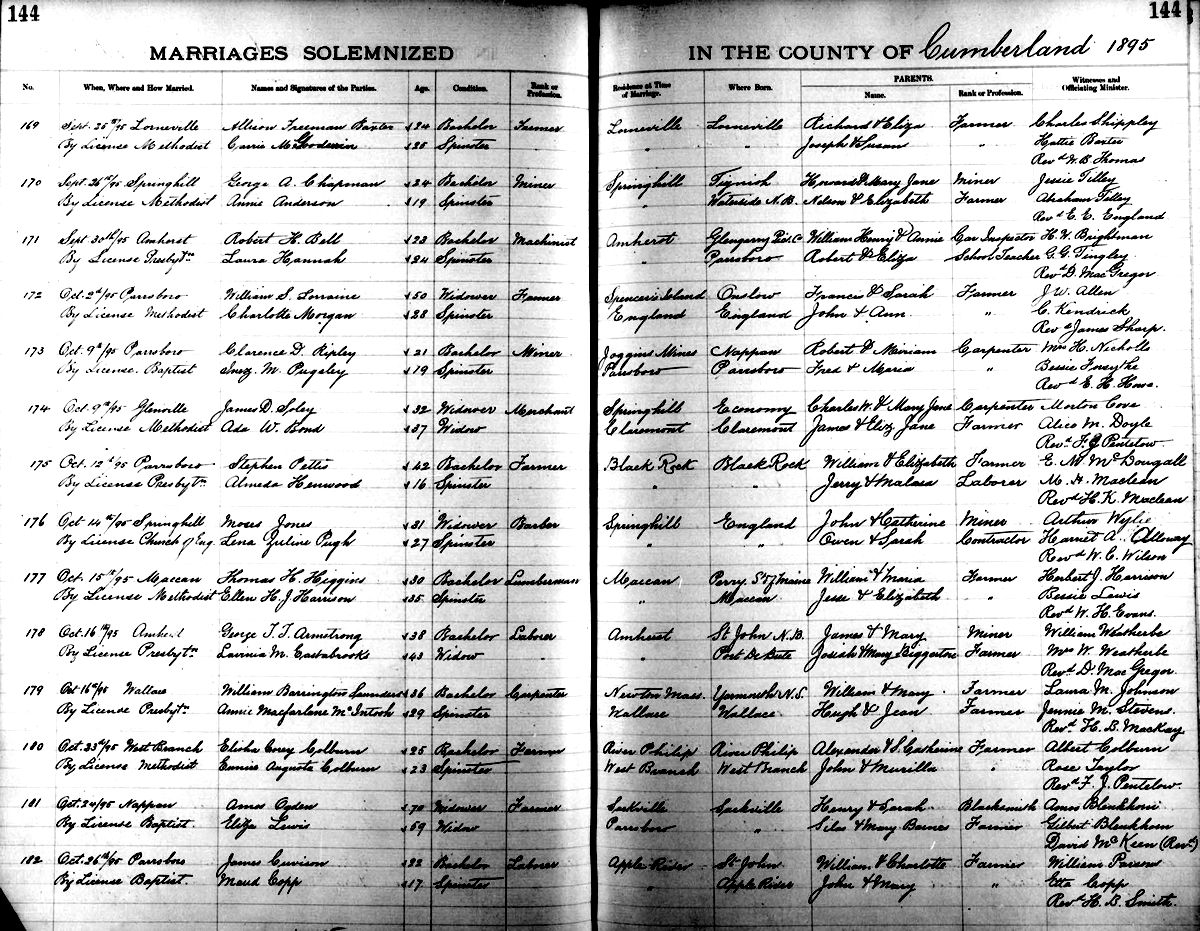 144
144
MARRIAGES SOLEMNIZED
IN THE COUNTY OF Cumberland 1895
No. When, Where and How Married. Names and Signatures of the Parties. Age. Condition. Rank or Profession. Residence at Time of Marriage. Where Born. PARENTS. Name. Rank or Profession. Witnesses and Officiating Minister.
169 Sept. 25th/95 Lorneville Allison Freeman Baxter 24 Bachelor Farmer Lorneville Lorneville Richard & Eliza Farmer Charles Shippley
By License Methodist Carrie Mc Goodwin 25 Spinster " " Joseph & Susan " Hattie Baxter
Revd W. B. Thomas
170 Sept. 26th/95 Springhill George A. Chapman 24 Bachelor Miner Springhill Tignish Howard & Mary Jane Miner Jessie Tilley
By License Methodist Annie Anderson 19 Spinster " Waterside N.B. Nelson & Elizabeth Farmer Abraham Tilley
Revd E. E. England
171 Sept 30th/95 Amherst Robert H. Bell 23 Bachelor Machinist Amherst Glengarry William Henry & Annie Car Inspector H. W. Brightman
By License Presbytn Laura Hannah 24 Spinster " Parrsboro Robert & Eliza School Teacher G. G. Tingley
Revd D. MacGregor
172 Oct. 2d/95 Parrsboro William S. Lorraine 50 Widower Farmer Spencer's Island Onslow Francis & Sarah Farmer J. W. Allen
By License Methodist Charlotte Morgan 28 Spinster England England John & Ann " C. Kendrick
Revd James Sharp.
173 Oct. 9th/95 Parrsboro Clarence D. Ripley 21 Bachelor Miner Joggins Mines Nappan Robert & Miriam Carpenter Mrs H. Nicholls
By License. Baptist Inez. M. Pugsley 19 Spinster Parrsboro Parrsboro Fred & Maria " Bessie Forsythe
Revd E. H. Howe.
174 Oct. 9th/95 Glenville James D. Soley 32 Widower Merchant Springhill Economy Charles W. & Mary Jane Carpenter Morton Cove
By License Methodist Ada W. Bond 37 Widow Claremont Claremont James & Eliz Jane Farmer Alice M. Doyle
Revd F. J. Pentelow
175 Oct. 12th/95 Parrsboro Stephen Pettis 42 Bachelor Farmer Black Rock Black Rock William & Elizabeth Farmer E. M. McDougall
By License Presbytn Almeda Henwood 16 Spinster " " Jerry & Laborer M. H. Maclean
Revd H. K. Maclean
176 Oct 14th/95 Springhill Moses Jones 31 Widower Barber Springhill England John & Catherine Miner Arthur Wylie
By License Church of Eng. Lena Zuline Pugh 27 Spinster " " Owen & Sarah Contractor Harriet A. Alloway
Revd W. C. Wilson
177 Oct. 15th/95 Maccan Thomas H. Higgins 30 Bachelor Lumberman Maccan Perry Maine William & Maria Farmer Herbert J. Harrison
By License Methodist Ellen H. J. Harrison 35 Spinster " Maccan Jesse & Elizabeth " Bessie Lewis
Revd W. H. Evans.
178 Oct. 16th/95 Amherst George T. T. Armstrong 38 Bachelor Laborer Amherst St John N.B. James & Mary Miner William Weatherbe
By License Presbytn Lavinia M. Eastabrooks 43 Widow " " Port De Bute Josiah & Mary Biggerton Farmer Mrs W. Weatherbe
Revd. D. MacGregor
179 Oct 16th/95 Wallace William Barrington Saunders 36 Bachelor Carpenter Newton Mass. Yarmouth N.S. William & Mary Farmer Laura M. Johnson
By License Presbytn Annie Macfarlane McIntosh 29 Spinster Wallace Wallace Hugh & Jean Farmer Jennie M. Stevens.
Revd H. B. Mackay
180 Oct. 23d/95 West Branch Elisha Corey Colburn 25 Bachelor Farmer River Philip River Philip Alexander & S. Catherine Farmer Albert Colburn
By License Methodist Augusta Colburn 23 Spinster West Branch West Branch John & Murilla " Rose Taylor
Revd F. J. Pentelow.
181 Oct. 24/95 Nappan Amos Ogden 70 Widower Farmer Sackville Sackville Henry & Sarah Blacksmith Amos Blenkhorn
By License Baptist. Eliza Lewis 59 Widow Parrsboro " Silas & Mary Barnes Farmer Gilbert Blenkhorn
David McKeen (Revd)
182 Oct. 26th/95 Parrsboro James 22 Bachelor Laborer Apple River St John William & Charlotte Farmer William
By License Baptist. Maud Copp 17 Spinster " Apple River John & Mary " Etta Copp
Revd H. B. Smith.